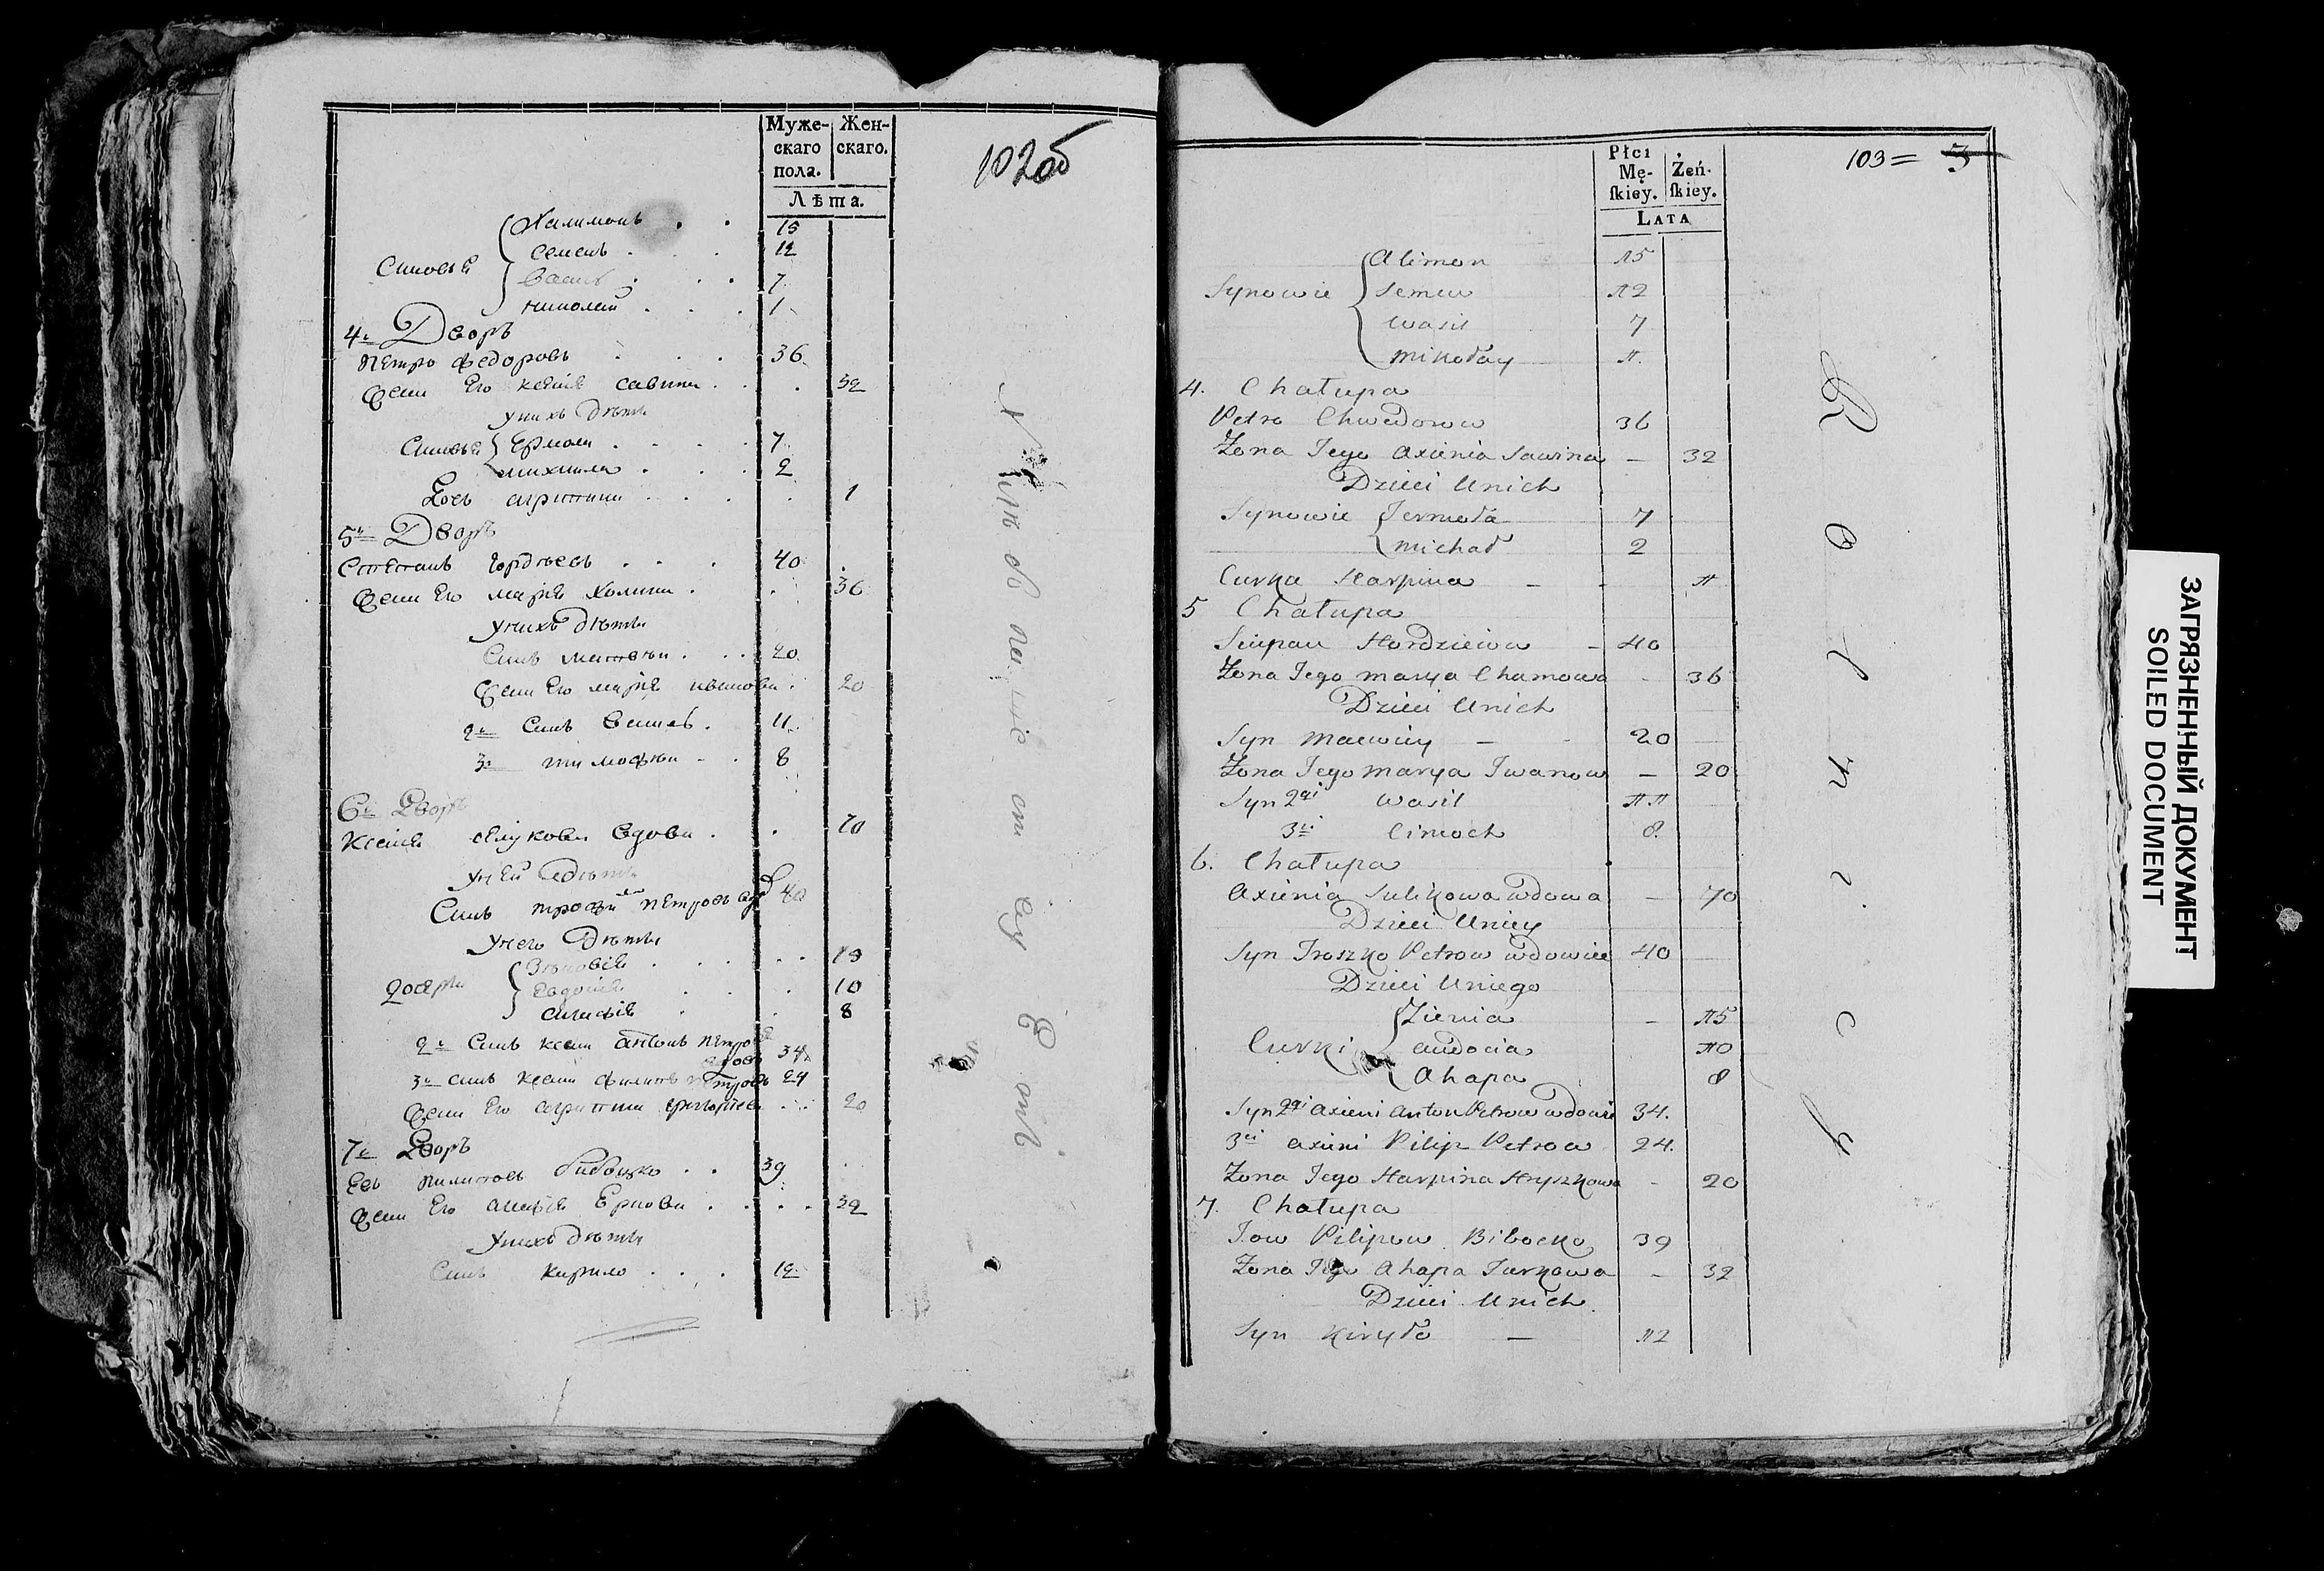 Муже-
скаго
пола.
Жен-
скаго.
Лѣта.
102об
Халимонъ 15
Семенъ 12
Синовья
Василь 7
Николай 1
4й Дворъ
Петро Федоровъ 36
Жена Его Ксенія Савина 32
У нихъ дѣти
Синовья Ермола 7
Михайла 2
Дочь Агрипина 1
5й Дворъ
Степанъ Гордѣевъ 40
Жена Его Марія Хомина 36
У нихъ дѣти
Синъ Матвѣй 20
Жена Его Марія Иванова 20
2й Синъ Василь 11
3й Тимофѣй 8
6й Дворъ
Ксенія вдова 70
У ней дѣти
Синъ Трофим Петровъ 40
У него дѣти
Зѣновія 15
Дочери Евдокія 10
Агафія 8
2й Синъ Ксени Антонъ Петровъ
вдовъ 34
3й Синъ Ксени Филипъ Петровъ 24
Жена Его Агрипина Григорьева 20
7й Дворъ
Евъ Пилиповъ Бибоцко 39
Жена Его Агафія 32
У нихъ дѣти
Синъ Кирило 12
Płci
Mę-
skiey.
Żeń-
skiey.
LATA
103= 3
Alimon 15
Synowie Semen 12
Wasil 7
Mikołay 1.
4. Chałupa
Petro Chwedorow 36
Żona Jego Axienia Sawina — 32
Dzieci Unich
Synowie Jermoła 7
Michał 2
Curka Harpina - - 1
5 Chałupa
Sciepan Hordzieiow - 40
Żona Jego Marya Chamowa - 36
Dzieci Unich
Syn Maciwiey — 20
Żona Jego Marya Iwanow — 20
Syn 2gi Wasil 11
3ci Cimoch 8.
6. Chałupa
Axienia Sulikowa wdowa — 70
Dzieci Uniey
Syn Troszko Petrow wdowiec 40
Dzieci Uniego
Zienia - 15
Curki Audocia 10
Ahapa 8
Syn 2gi Axieni Anton Petrow wdowiec 34.
3ci Axieni Pilip Petrow 24.
Żona Jego Harpina Hryszkowa - 20
7. Chałupa
Jow Pilipow Bibocko 39
Żona Jego Ahapa Jurkowa - 32
Dzieci Unich.
Syn Kiryło — 12
ЗАГРЯЗНЕННЫЙ ДОКУМЕНТ
SOILED DOCUMENT